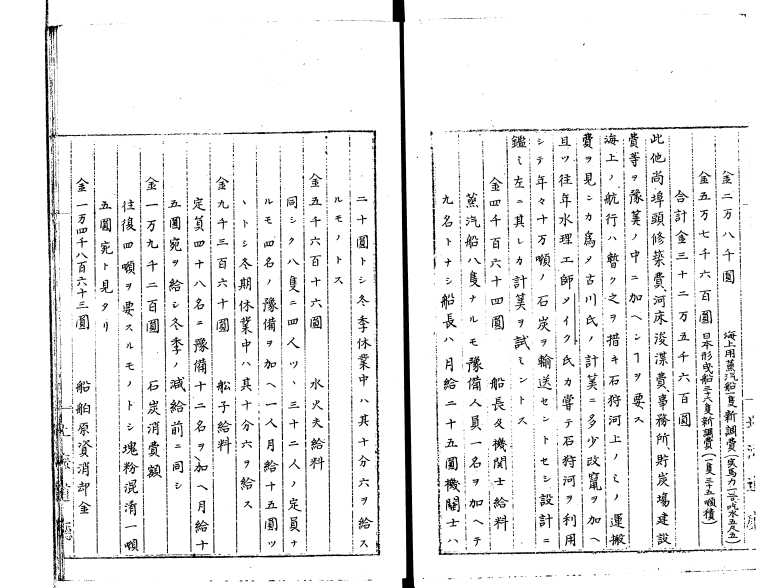 金二万八千圓 海上用蒸汽船一隻新調費
金五万七千六百圓 日本形曳船三十六隻新調費(一隻三十五噸積)
合計金三十二万五千六百圓
此他尚埠頭修築費河床浚渫費事務所貯炭場建設
費等ヲ豫筭ノ中ニ加ヘンヿヲ要ス
海上ノ航行ハ暫ク之ヲ措キ石狩河上ノミノ運搬
費ヲ見ンカ爲メ古川氏ノ計筭ニ多少改竄ヲ加ヘ
且ツ往年水理工師メイク氏カ嘗テ石狩河ヲ利用
シテ年々十万噸ノ石炭ヲ輸送セントセシ設計ニ
鑑ミ左ニ其レカ計筭ヲ試ミントス
金四千百六十四圓 船長及機関士給料
蒸汽船八隻ナルモ豫備人員一名ヲ加ヘテ
九名トナシ船長ハ月給二十五圓機関士ハ
二十圓トシ冬季休業中ハ其十分六ヲ給ス
ルモノトス
金五千六百十六圓 水火夫給料
同シク八隻ニ四人ツヽ三十二人ノ定員ナ
ルモ四名ノ豫備ヲ加ヘ一人月給十五圓ツ
ヽトシ冬期休業中ハ其十分六ヲ給ス
金九千三百六十圓 舩子給料
定員四十八名ニ豫備十二名ヲ加ヘ月給十
五圓宛ヲ給シ冬季ノ減給前ニ同シ
金一万九千二百圓 石炭消費額
往復四噸ヲ要スルモノトシ塊粉混淆一噸
五圓宛ト見タリ
金一万四千八百六十三圓 船舶原資消却金